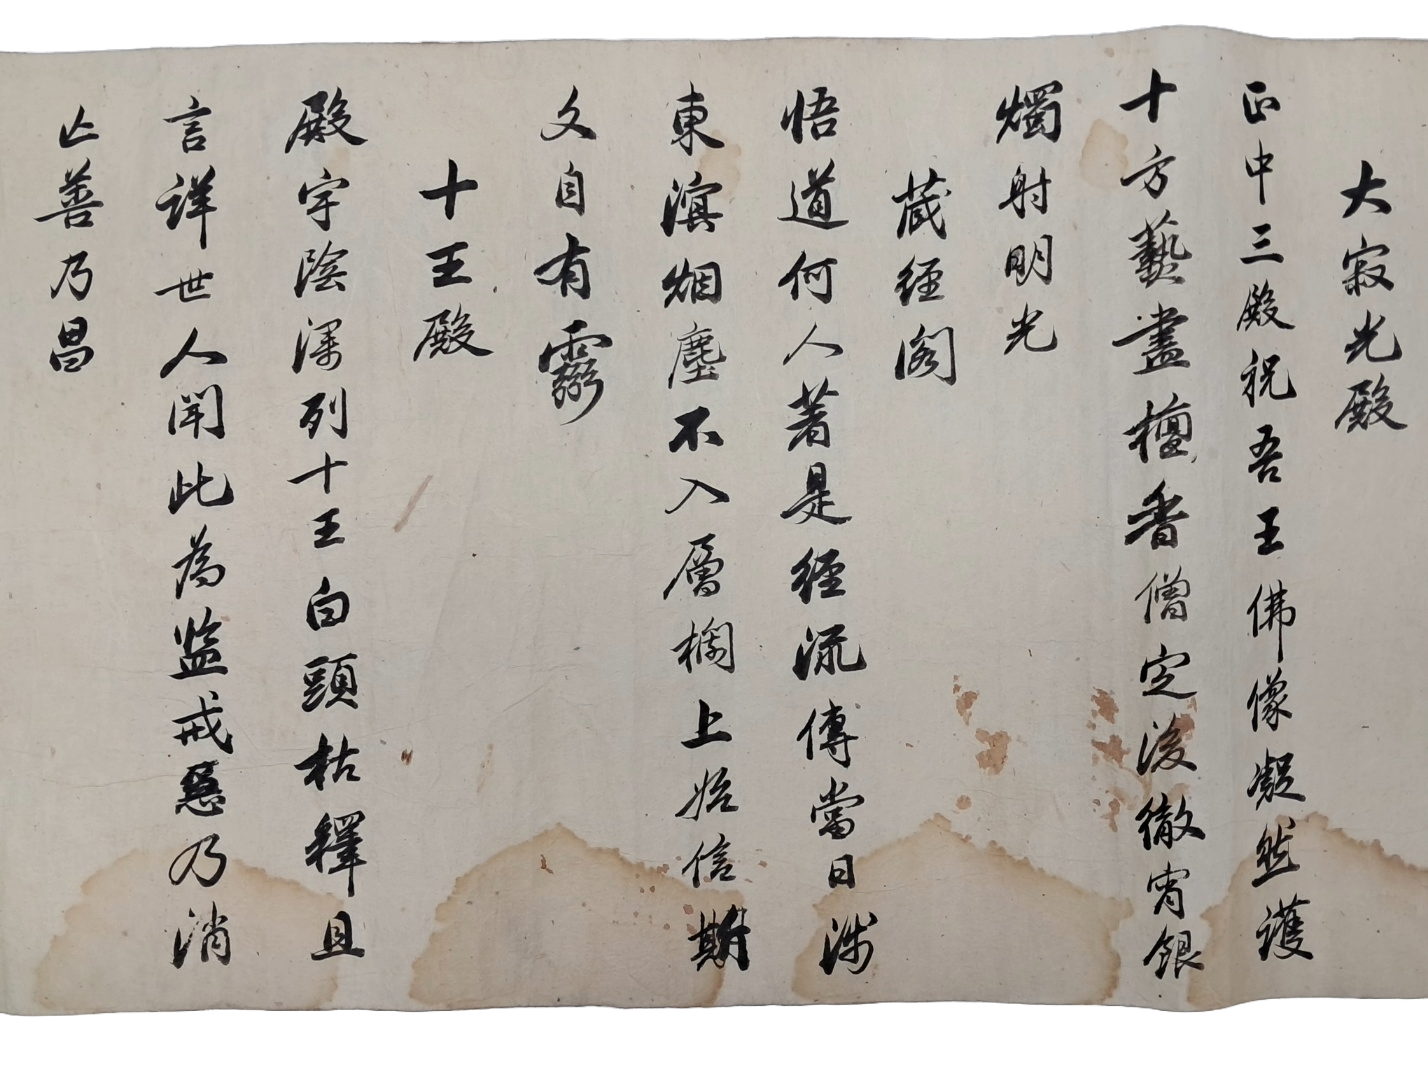 大寂光殿
正中三殿祝吾王佛像凝然護
十方藝盡檀香僧定後徹宵銀
燭射明光
藏經閣
悟道何人著是經流傳當日涉
東溟烟塵不入層欄上始信斯
文自有靈
十王殿
殿宇陰深列十王白頭枯釋且
言詳世人聞此為監戒惡乃消
亡善乃昌